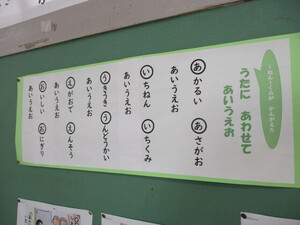 １ねん１くみが　かんがえた
うたに　あわせて
あいうえお
あかるい　あさがお
あいうえお
いちねん　いちくみ
あいうえお
うきうき　うんどうかい
あいうえお
えがおで　えんそう
あいうえお
おいしい　おにぎり
あいうえお